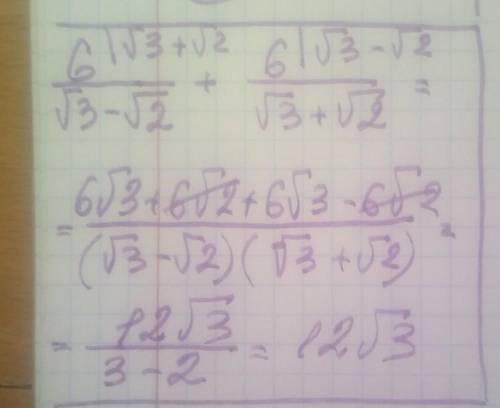 6 |√3 + √2 / √3 − √2 + 6 |√3 − √2 / √3 + √2 =
= 6√3 + 6√2 + 6√3 − 6√2 / (√3 − √2)(√3 + √2) =
= 12√3 / 3 − 2 = 12√3